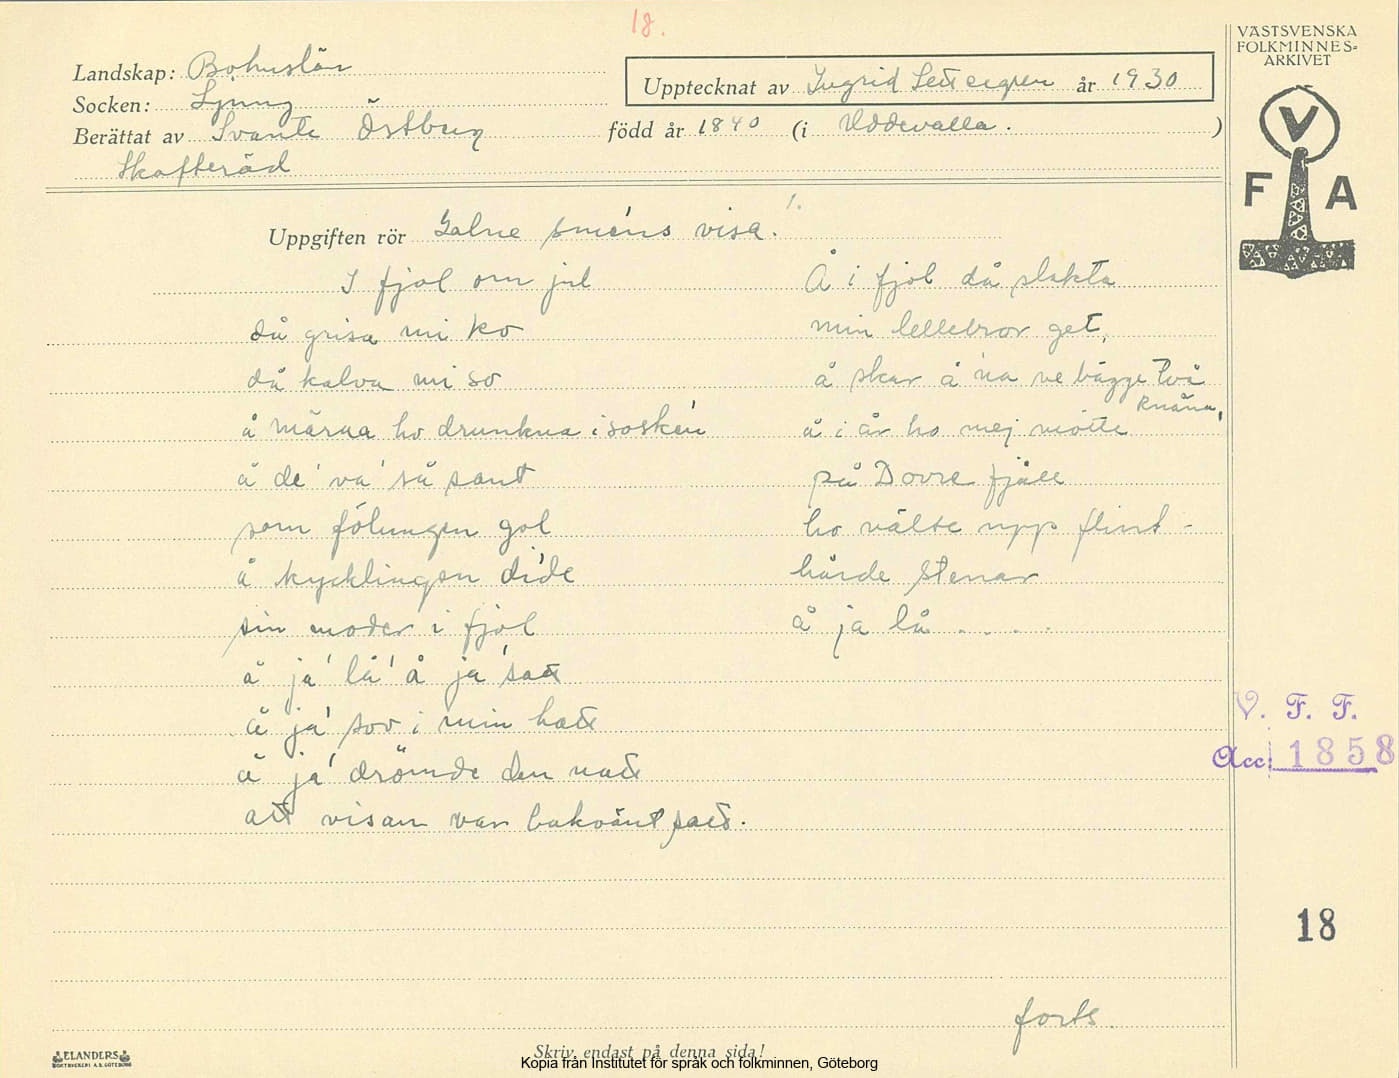 18.
VÄSTSVENSKA
FOLKMINNES-
ARKIVET
Landskap: Bohuslän
Socken: Ljung
Upptecknat av Ingrid år 1930
Berättat av Svante Östberg född år 1840 (i Uddevalla. )
Skafteröd
V
F A
Uppgiften rör Galne smens visa. 1.
I fjol om jul
då grisa mi ko
då kalva mi so
å märra ho drunkna i sosken
å de' va' så sant
som fölungen gol
å kycklingen di'de
sin moder i fjol
å ja' lå' å ja' satt
å ja' sov i min hatt
å ja' drömde den natt
att visan var bakvänt satt.
Å i fjol då slakta
min lellebror get,
å skar å 'na ve bägge två
knäna,
å i år ho mej mötte
på Dovre fjäll
ho välte upp flint-
hårde stenar
å ja lå . . . .
V. F. F.
Acc: 1858
18
forts.
ELANDERS
BOKTRYCKERI A.B. GÖTEBORG
Skriv endast på denna sida!
Kopia från Institutet för språk och folkminnen, Göteborg